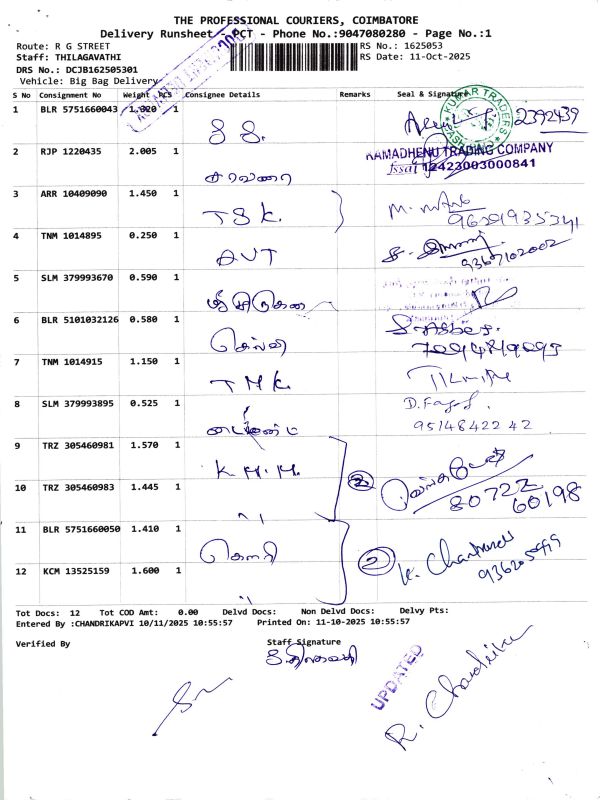 THE PROFESSIONAL COURIERS, COIMBATORE
Delivery Runsheet - PCT - Phone No.:9047080280 - Page No.:1
Route: R G STREET
RS No.: 1625053
Staff: THILAGAVATHI
RS Date: 11-Oct-2025
DRS No.: DCJB162505301
Vehicle: Big Bag Delivery
S No Consignment No Weight PCS Consignee Details Remarks Seal & Signature
1 BLR 5751660043 1.320 1 S S. 2392439
KUMAR TRADERS
2 RJP 1220435 2.005 1
KAMADHENU TRADING COMPANY
fssai 12423003000841
3 ARR 10409090 1.450 1 T S K.
4 TNM 1014895 0.250 1 A V T
9367102002
5 SLM 379993670 0.590 1
6 BLR 5101032126 0.580 1 செல்வி
7 TNM 1014915 1.150 1 T M K.
8 SLM 379993895 0.525 1 D. Fazal.
9514842242
9 TRZ 305460981 1.570 1 K. M. M. 2
10 TRZ 305460983 1.445 1 "
80722
60198
11 BLR 5751660050 1.410 1 கௌரி 2
12 KCM 13525159 1.600 1 "
Tot Docs: 12 Tot COD Amt: 0.00 Delvd Docs: Non Delvd Docs: Delvy Pts:
Entered By :CHANDRIKAPVI 10/11/2025 10:55:57 Printed On: 11-10-2025 10:55:57
Verified By Staff Signature
UPDATED
R. Chandrika